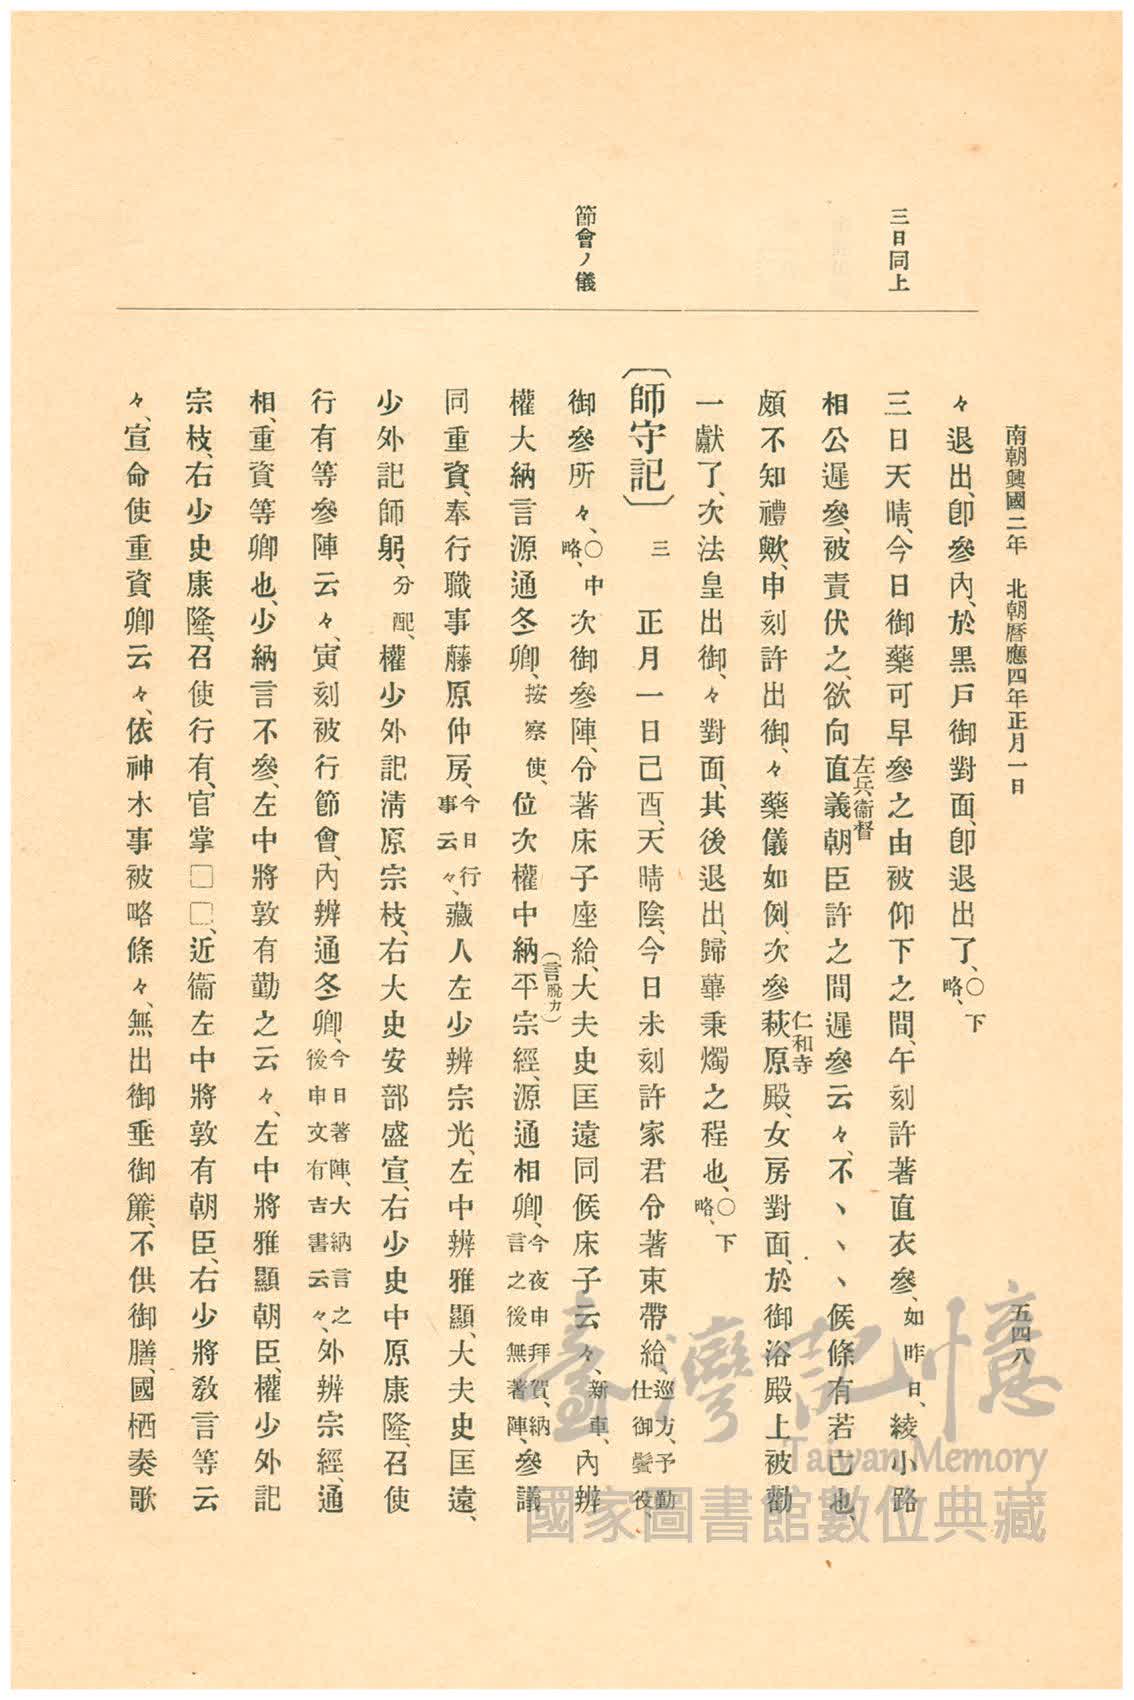 南朝興國二年　北朝曆應四年正月一日
五四八
三日同上
節會ノ儀
々退出、卽參內、於黑戶御對面、卽退出了、○下略、
三日天晴、今日御藥可早參之由被仰下之間、午刻許著直衣參、如昨日、綾小路
相公遲參、被責伏之、欲向直義朝臣許之間遲參云々、不、、、候條有若亡也、
左兵衞督
頗不知禮歟、申刻許出御、々藥儀如例、次參萩原殿、女房對面、於御浴殿上被勸
仁和寺
一獻了、次法皇出御、々對面、其後退出、歸蓽秉燭之程也、○下略、
〔師守記〕　三　正月一日己酉、天晴陰、今日未刻許家君令著束帶給、巡方、予勤仕御鬢役、
御參所々、○中略、次御參陣、令著床子座給、大夫史匡遠同候床子云々、新車、內辨
權大納言源通冬卿、按察使、位次權中納平宗經、源通相卿、今夜申拜賀、納言之後無著陣、參議
（言脫カ）
同重資、奉行職事藤原仲房、今日行事云々、藏人左少辨宗光、左中辨雅顯、大夫史匡遠、
少外記師躬、分配、權少外記淸原宗枝、右大史安部盛宣、右少史中原康隆、召使
行有等參陣云々、寅刻被行節會、內辨通冬卿、今日著陣、大納言之後申文有吉書云々、外辨宗經、通
相、重資等卿也、少納言不參、左中將敦有勤之云々、左中將雅顯朝臣、權少外記
宗枝、右少史康隆、召使行有、官掌□□、近衞左中將敦有朝臣、右少將敎言等云
々、宣命使重資卿云々、依神木事被略條々、無出御垂御簾、不供御膳、國栖奏歌
臺灣記憶
Taiwan Memory
國家圖書館數位典藏